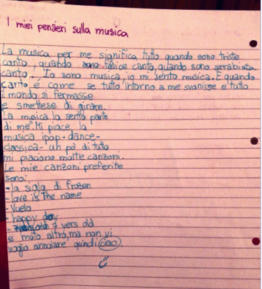 I miei pensieri sulla musica
La musica per me significa tutto quando sono triste
canto, quando sono felice canto, quando sono arrabbiata
canto. Io sono musica, io mi sento musica. E quando
canto è come se tutto intorno a me svanisse e tutto
il mondo si fermasse
e smettesse di girare.
La musica la sento parte
di me. Mi piace la
musica pop-dance-
classica- un pò di tutto
mi piacciono molte canzoni.
Le mie canzoni preferite
sono:
- la sigla di Frozen
- love is the name
- Vuelo
- happy day
- 7 years old
e molto altro, ma non vi
voglio annoiare quindi ciao